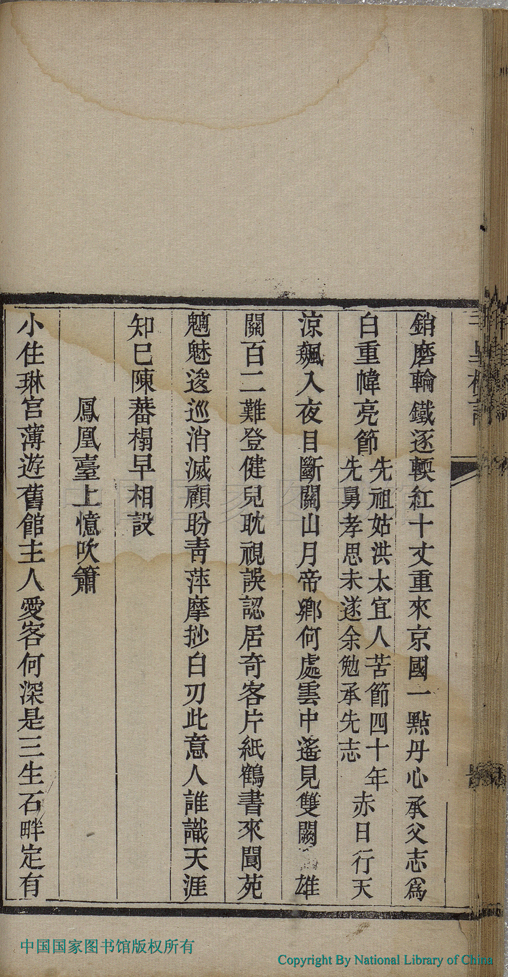 銷磨輪鐵逐輭紅十丈重來京國一點丹心承父志爲
白重幃亮節先祖姑洪太宜人苦節四十年先舅孝思未遂余勉承先志赤日行天
涼飈入夜目斷關山月帝鄉何處雲中遙見雙闕 雄
關百二難登健兒耽視誤認居奇客片紙鶴書來閬苑
魑魅逡巡消滅顧盼青萍摩抄白刃此意人誰識天涯
知已陳蕃榻早相設
鳳凰臺上憶吹簫
小住琳宮薄遊舊館主人愛客何深是三生石畔定有
中国国家图书馆版权所有
Copyright By National Library of China